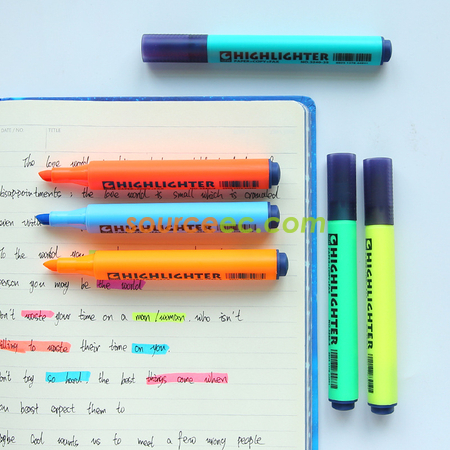 HIGHLIGHTER
DATE / NO. TITLE
The love world
HIGHLIGHTER
disappointments : the love world is small which is crowded
HIGHLIGHTER
sourceec.com
even
To the world you
HIGHLIGHTER
person you may be the world
don't waste your time on a man/woman who isn't
willing to waste their time on you.
don't try so hard, the best things come when
you least expect them to
maybe God wants us to meet a few wrong people
HIGHLIGHTER
HIGHLIGHTER